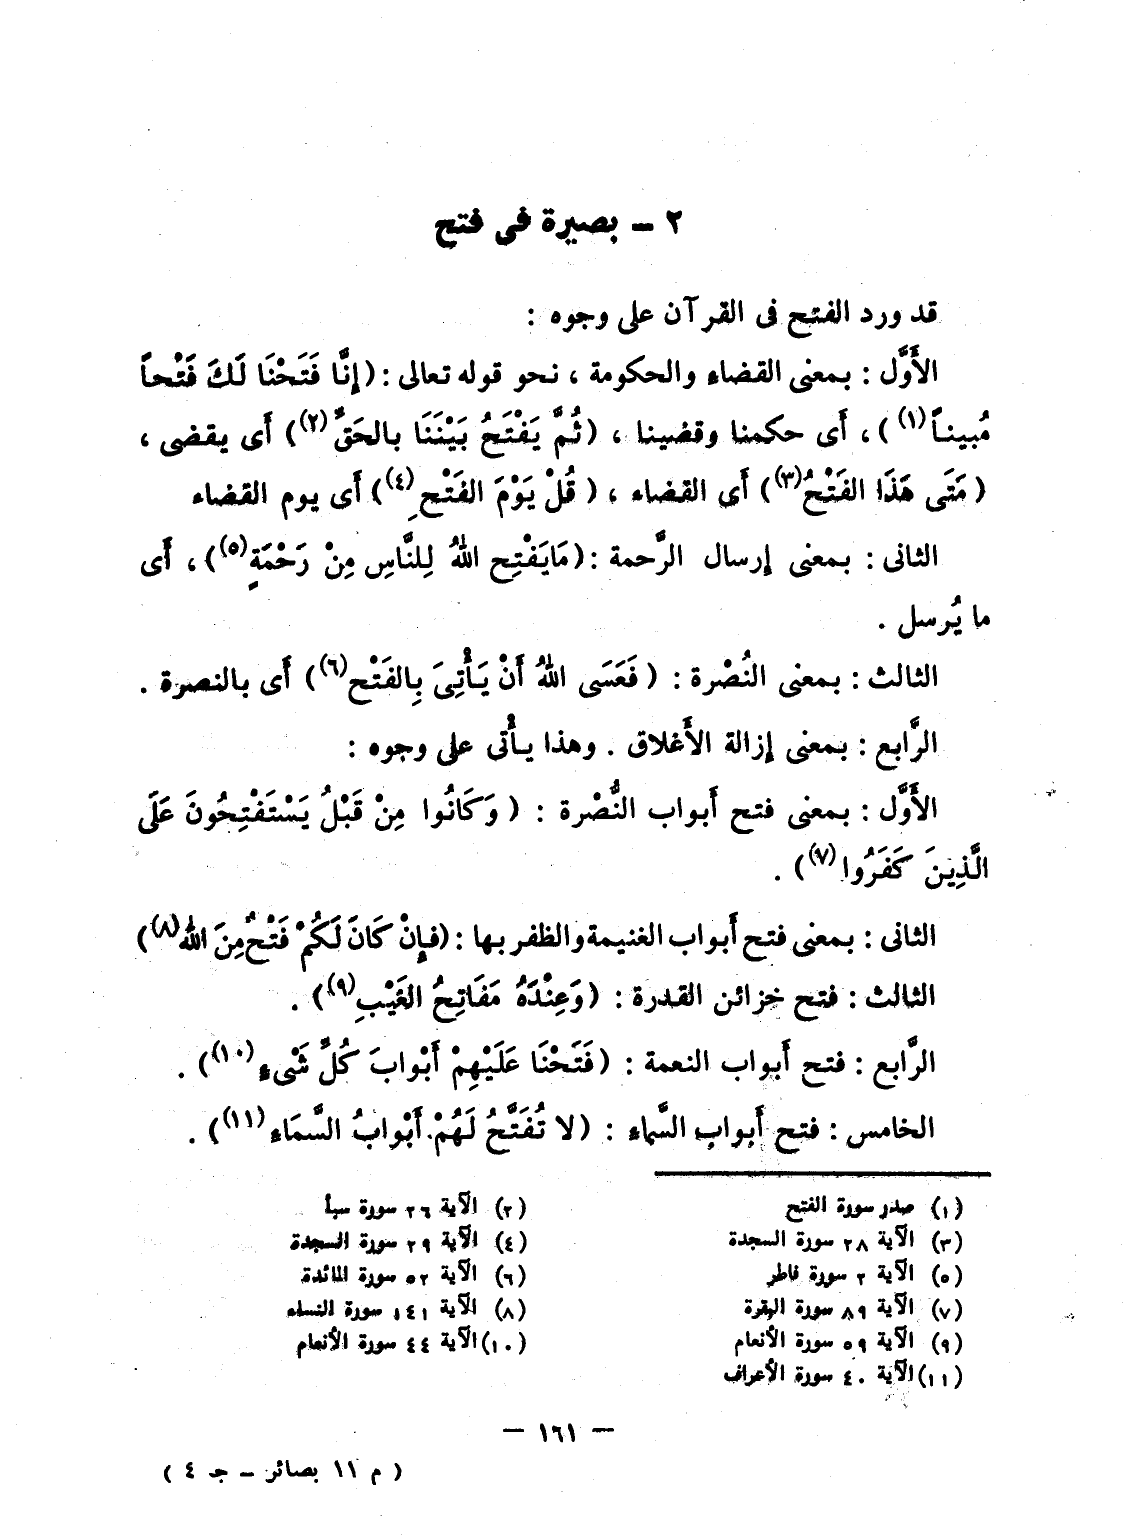 ٢ – بصيرة فى فتح
قد ورد الفتح فى القرآن على وجوه :
الأَوَّل : بمعنى القضاء والحكومة ، نحو قوله تعالى : (إِنَّا فَتَحْنَا لَكَ فَتْحاً
مُبيناً(١) ) ، أَى حكمنا وقضينا ، (ثُمَّ يَفْتَحُ بَيْنَنَا بالحَقِّ(٢)) أَى يقضى ،
( مَتَى هَذَا الفَتْحُ(٣)) أَى القضاء ، ( قُلْ يَوْمَ الفَتْحِ(٤)) أَى يوم القضاء
الثانى : بمعنى إرسال الرَّحمة : (مَايَفْتِحِ اللهُ لِلنَّاسِ مِنْ رَحْمَةٍ(٥)) ، أَى
ما يُرسل .
الثالث : بمعنى النُصْرة : ( فَعَسَى اللهُ أَنْ يَأْتِىَ بِالفَتْحِ(٦)) أَى بالنصرة .
الرَّابع : بمعنى إزالة الأَغلاق . وهذا يأْتى على وجوه :
الأَوَّل : بمعنى فتح أَبواب النُّصْرة : ( وَكَانُوا مِنْ قَبْلُ يَسْتَفْتِحُونَ عَلَى
الَّذِينَ كَفَرُوا(٧)) .
الثانى : بمعنى فتح أَبواب الغنيمة والظفر بها : (فإِنْ كَانَ لَكُمْ فَتْحٌ مِنَ اللهِ(٨))
الثالث : فتح خزائن القدرة : (وَعِنْدَهُ مَفَاتِحُ الغَيْبِ(٩)) .
الرَّابع : فتح أَبواب النعمة : (فَتَحْنَا عَلَيْهِمْ أَبْوابَ كُلِّ شَىْءٍ(١٠)) .
الخامس : فتح أَبواب السَّماء : (لا تُفَتَّحُ لَهُمْ أَبْوابُ السَّمَاءِ(١١)) .
(١) صدر سورة الفتح
(٢) الآية ٢٦ سورة سبأ
(٣) الآية ٢٨ سورة السجدة
(٤) الآية ٢٩ سورة السجدة
(٥) الآية ٢ سورة فاطر
(٦) الآية ٥٢ سورة المائدة
(٧) الآية ٨٩ سورة البقرة
(٨) الآية ١٤١ سورة النساء
(٩) الآية ٥٩ سورة الأنعام
(١٠) الآية ٤٤ سورة الأنعام
(١١) الآية ٤٠ سورة الأعراف
— ١٦١ —
( م ١١ بصائر – جـ ٤ )